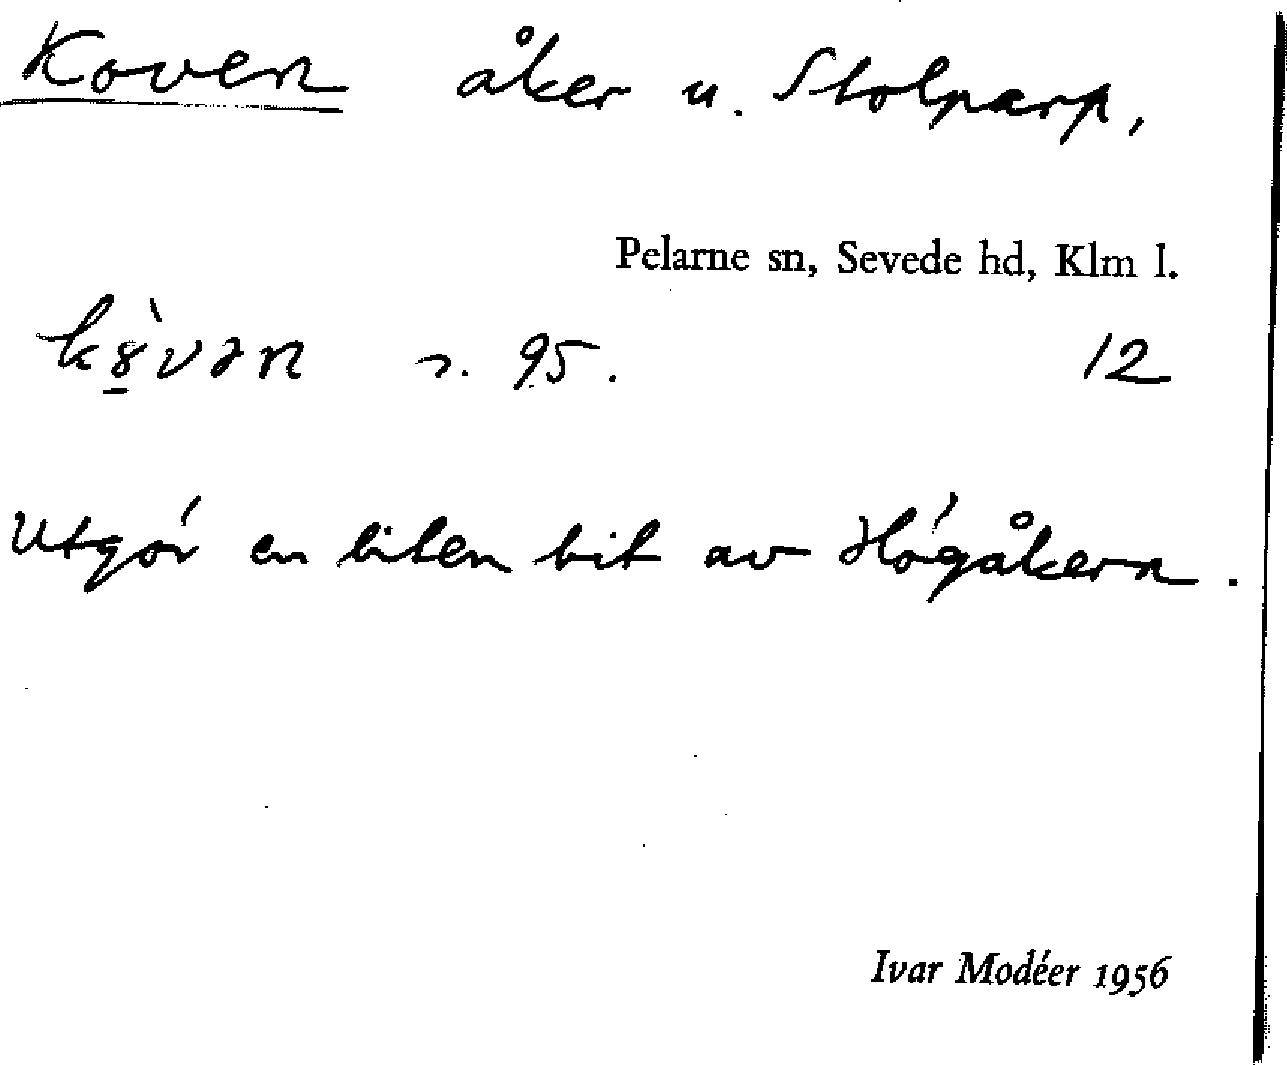 Koven åker u. Stolparp,
Pelarne sn, Sevede hd, Klm l.
95. 12
Utgör en liten bit av Högåkern.
Ivar Modéer 1956